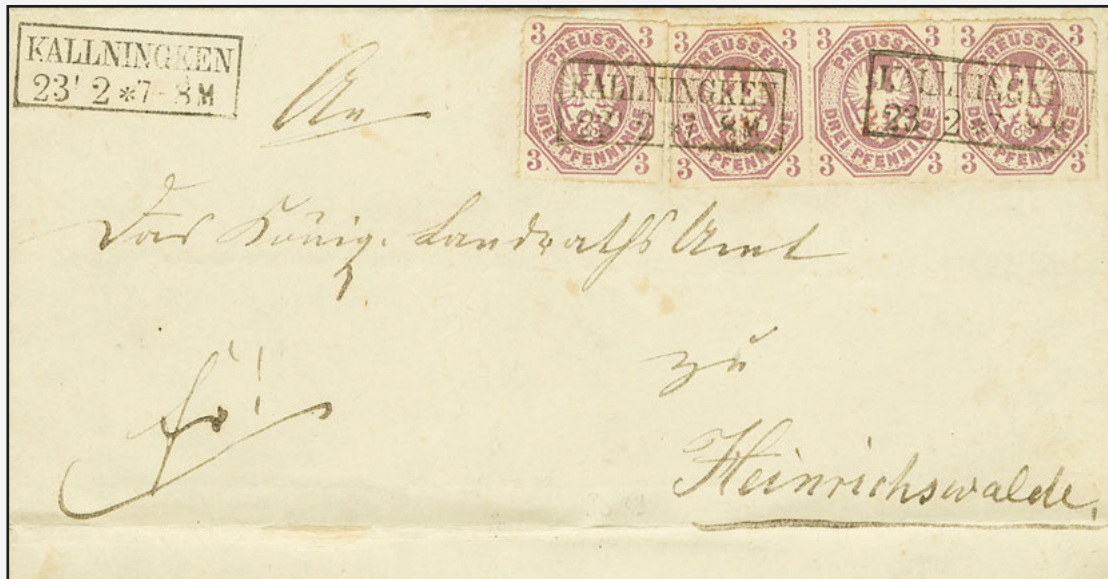 KALLNINGKEN
23' 2 *7-8M
3 PREUSSEN 3
DREI PFENNINGE
3 3
3 PREUSSEN 3
DREI PFENNINGE
3 3
3 PREUSSEN 3
DREI PFENNINGE
3 3
3 PREUSSEN 3
DREI PFENNINGE
3 3
KALLNINGKEN
23' 2 *7-8M
KALLNINGKEN
23 2 *7-8M
An
Das König. Landraths Amt
zu
Heinrichswalde.